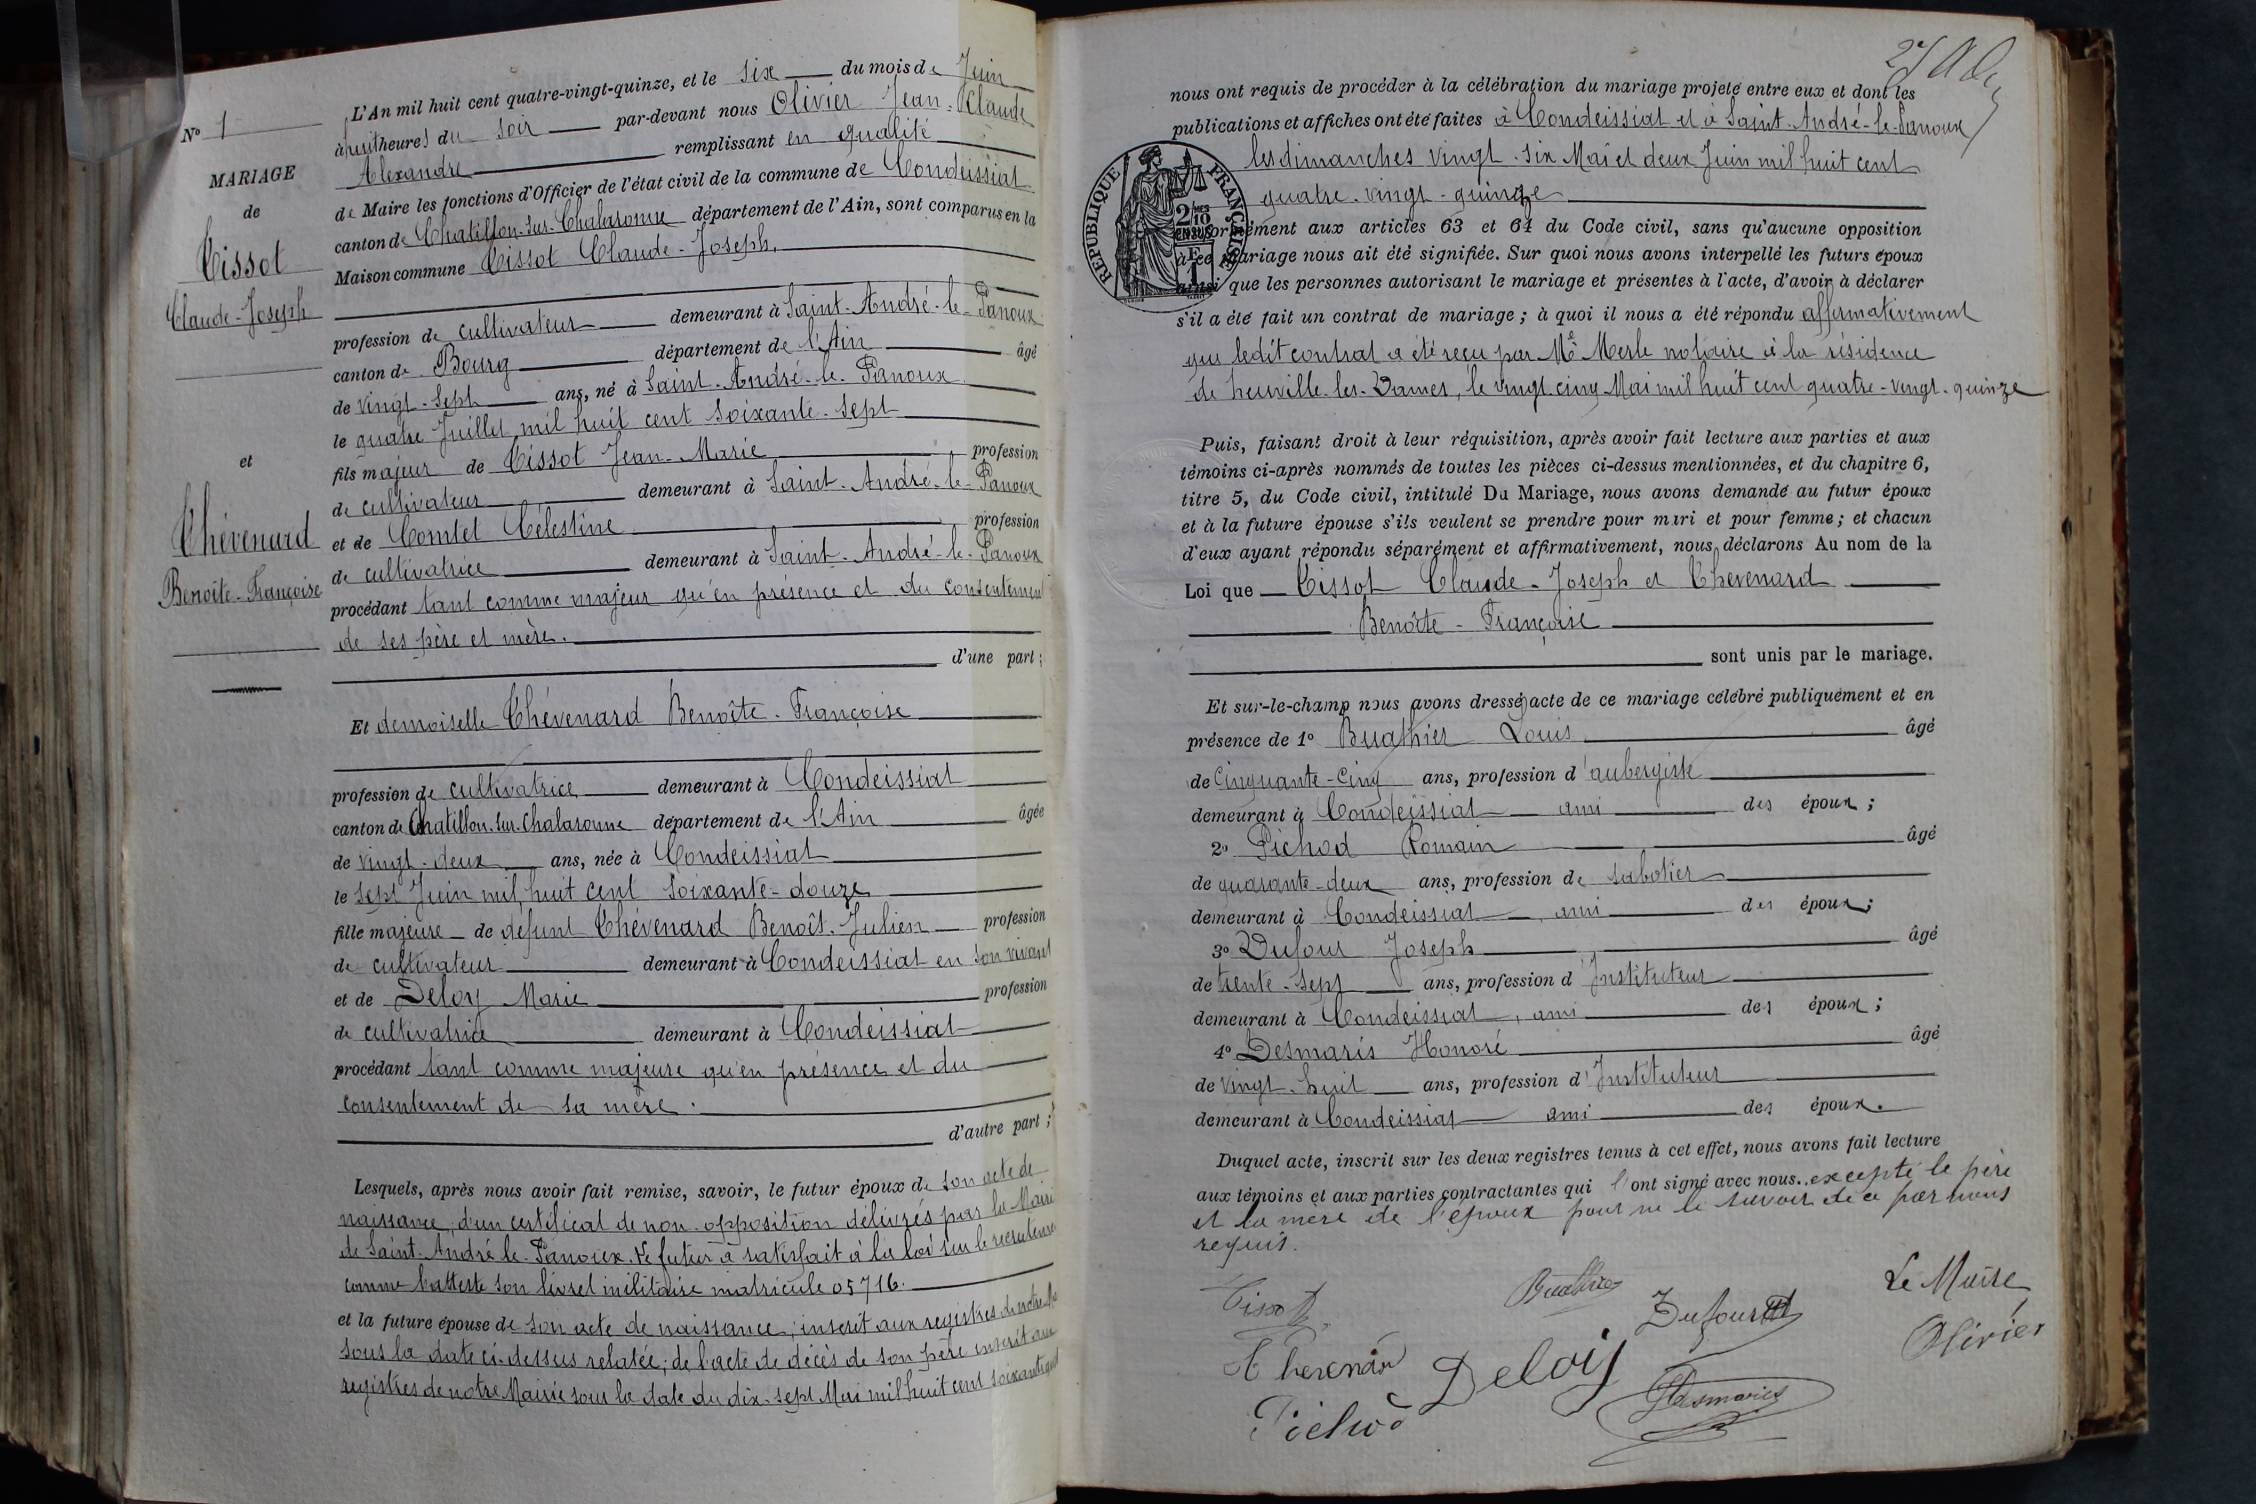 N° 1
MARIAGE
de
Tissot
Claude-Joseph
et
Thévenard
Benoîte-Françoise
L'An mil huit cent quatre-vingt-quinze, et le six du mois de Juin
à huit heures du soir par-devant nous Olivier Jean-Claude
Alexandre remplissant en qualité
de Maire les fonctions d'Officier de l'état civil de la commune de Condeissiat
canton de Chatillon-sur-Chalaronne département de l'Ain, sont comparus en la
Maison commune Tissot Claude-Joseph,
profession de cultivateur demeurant à Saint-André-le-Panoux
canton de Bourg département de l'Ain âgé
de vingt-sept ans, né à Saint-André-le-Panoux
le quatre Juillet mil huit cent soixante-sept
fils majeur de Tissot Jean-Marie profession
de cultivateur demeurant à Saint-André-le-Panoux
et de Comtet Célestine profession
de cultivatrice demeurant à Saint-André-le-Panoux
procédant tant comme majeur qu'en présence et du consentement
de ses père et mère.
d'une part;
Et demoiselle Thévenard Benoîte-Françoise
profession de cultivatrice demeurant à Condeissiat
canton de Chatillon-sur-Chalaronne département de l'Ain âgée
de vingt-deux ans, née à Condeissiat
le sept Juin mil huit cent soixante-douze
fille majeure de défunt Thévenard Benoît-Julien profession
de cultivateur demeurant à Condeissiat en son vivant
et de Deloy Marie profession
de cultivatrice demeurant à Condeissiat
procédant tant comme majeure qu'en présence et du
consentement de sa mère.
d'autre part;
Lesquels, après nous avoir fait remise, savoir, le futur époux de son acte de
naissance, d'un certificat de non-opposition délivrés par la Mairie
de Saint-André-le-Panoux. Le futur a satisfait à la loi sur le recrutement
comme l'atteste son livret militaire matricule 05716.
et la future épouse de son acte de naissance, inscrit aux registres de notre
sous la date ci-dessus relatée; de l'acte de décès de son père inscrit aux
registres de notre Mairie sous la date du dix-sept Mai mil huit cent soixante
27
nous ont requis de procéder à la célébration du mariage projeté entre eux et dont les
publications et affiches ont été faites à Condeissiat et à Saint-André-le-Panoux
les dimanches vingt-six Mai et deux Juin mil huit cent
quatre-vingt-quinze
RÉPUBLIQUE FRANÇAISE
2/10 EN SUS
conformément aux articles 63 et 64 du Code civil, sans qu'aucune opposition
à ce mariage nous ait été signifiée. Sur quoi nous avons interpellé les futurs époux
ainsi que les personnes autorisant le mariage et présentes à l'acte, d'avoir à déclarer
s'il a été fait un contrat de mariage; à quoi il nous a été répondu affirmativement
que ledit contrat a été reçu par Me Merle notaire à la résidence
de neuville-les-Dames, le vingt-cinq Mai mil huit cent quatre-vingt-quinze
Puis, faisant droit à leur réquisition, après avoir fait lecture aux parties et aux
témoins ci-après nommés de toutes les pièces ci-dessus mentionnées, et du chapitre 6,
titre 5, du Code civil, intitulé Du Mariage, nous avons demandé au futur époux
et à la future épouse s'ils veulent se prendre pour mari et pour femme; et chacun
d'eux ayant répondu séparément et affirmativement, nous déclarons Au nom de la
Loi que Tissot Claude-Joseph et Thevenard
Benoîte-Françoise
sont unis par le mariage.
Et sur-le-champ nous avons dressé acte de ce mariage célébré publiquement et en
présence de 1° Buathier Louis âgé
de cinquante-cinq ans, profession d'aubergiste
demeurant à Condeissiat ami des époux;
2° Pichod Romain âgé
de quarante-deux ans, profession de sabotier
demeurant à Condeissiat, ami des époux;
3° Dufour Joseph âgé
de trente-sept ans, profession d'Instituteur
demeurant à Condeissiat, ami des époux;
4° Desmaris Honoré âgé
de vingt-huit ans, profession d'Instituteur
demeurant à Condeissiat ami des époux.
Duquel acte, inscrit sur les deux registres tenus à cet effet, nous avons fait lecture
aux témoins et aux parties contractantes qui l'ont signé avec nous. excepté le père
et la mère de l'époux pour ne le savoir de ce par nous
requis.
Tissot Buathier Dufour Le Maire
Thevenard Deloy Desmaris Olivier
Pichod